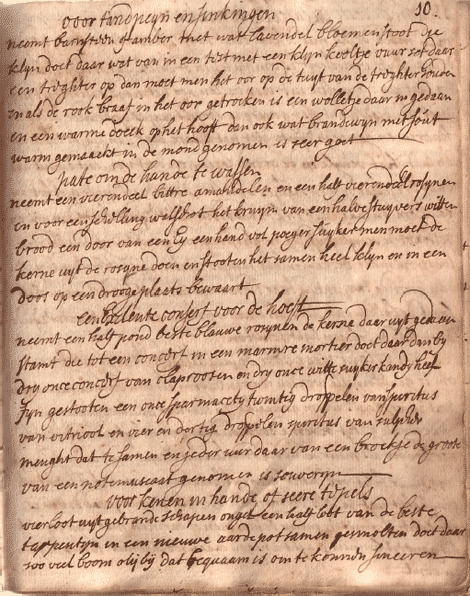 10.
voor tandpeyn en sinkingen
neemt barnsteen of amber met wat lavendel bloem en stoot die
klyn doet daar wat van in een test met een klyn kooltje vuur set daar
een treghter op dan moet men het oor op de tuyt van de treghter houden
en als de rook braaf in het oor getrocken is een wolletje daar in gedaan
en een warme doeck op het hooft dan ook wat brandewyn met sout
warm gemaackt in de mond genomen is seer goet
pate om de hande te wassen
neemt een vierendeel bittre amandelen en een half vierendeel rosynen
en voor een schelling het kruym van een halve stuyvers witte
brood een door van een Ey een hand vol poeyer suyker men moet de
kerne uyt de rosyne doen en stooten het samen heel klyn en in een
doos op een drooge plaats bewaart
Een Exelente consert voor de hoest
neemt een half pond beste blauwe rosynen de kerne daar uyt gedaan
stamt die tot een consert in een marmre mortier doet daar dan by
dry once consert van claproosen en dry once witte suyker kandy heel
fyn gestooten een once spermacety twintig droppelen spiritus
van vitriool en vier en dertig droppelen spiritus van sulpher
menght dat te samen en ieder uur daar van een brockje de groote
van een notemuscaat genomen is souveryn
voor kenen in hande of seere tepels
vier loot uyt gebrande schapen ongel een half loot van de beste
terpentyn in een nieuwe aarde pot samen gesmolten doet daar
soo veel boom oly by dat bequaam is om te konnen smeeren